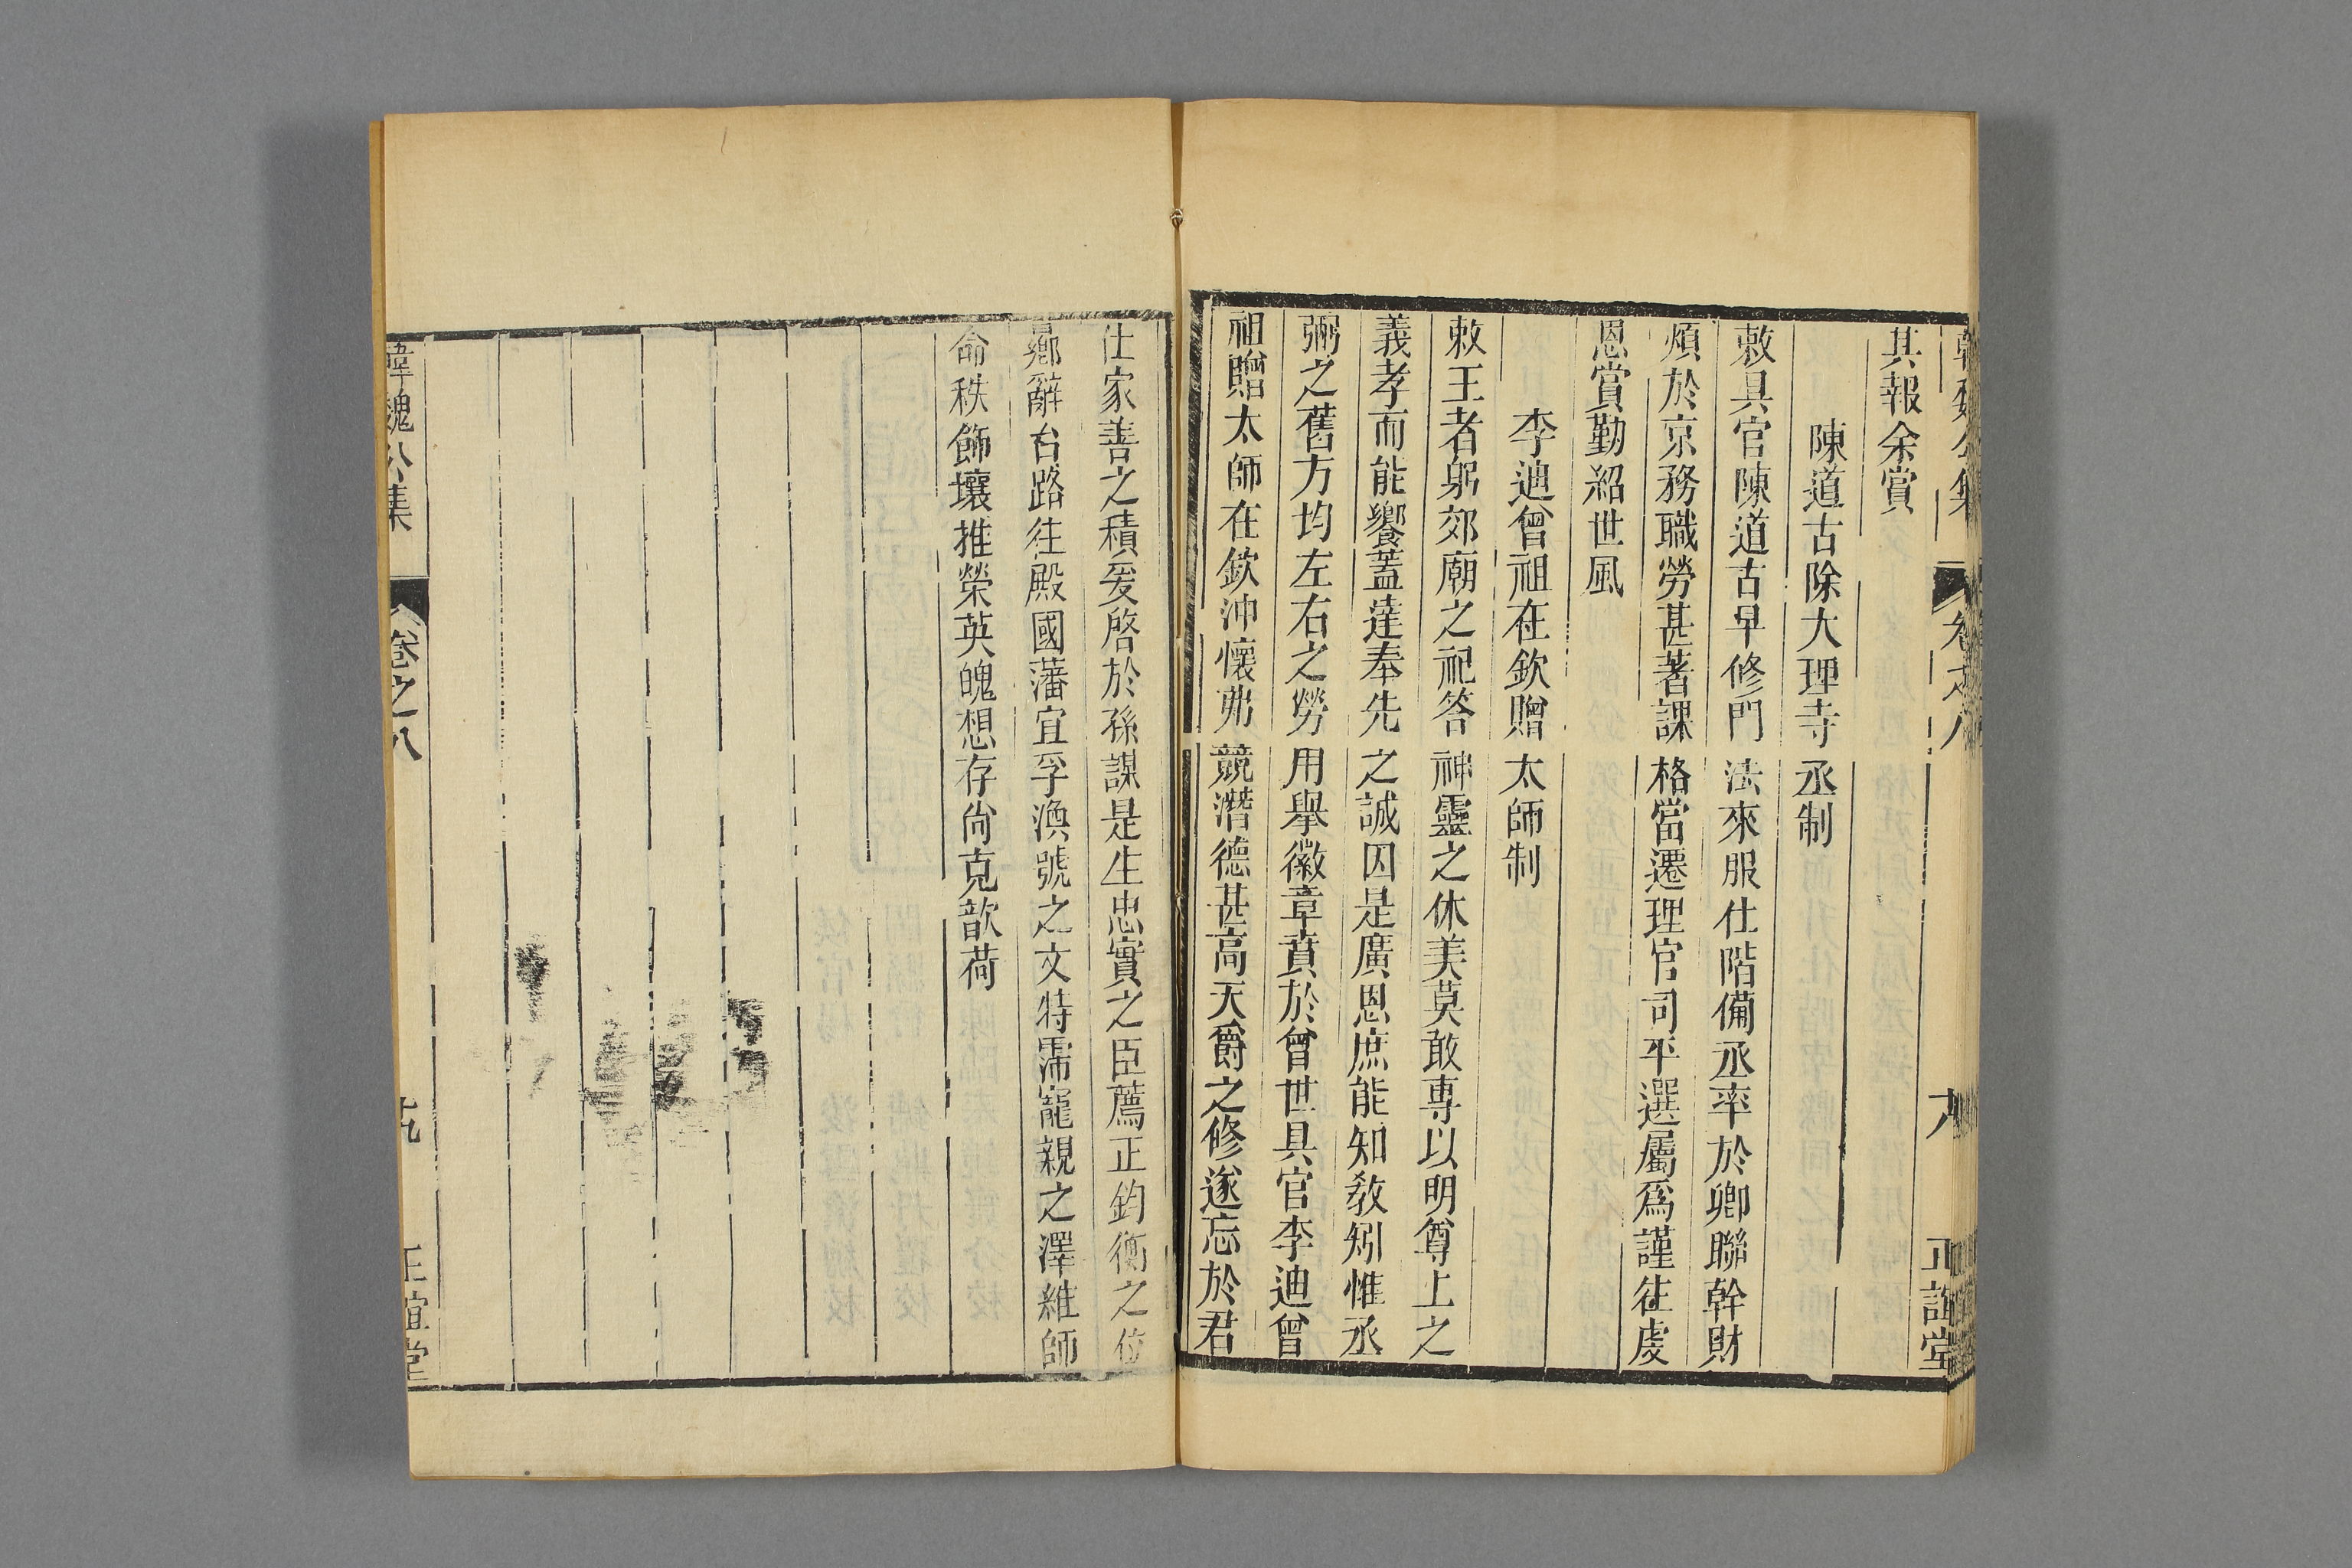 韓魏公集 卷之八 正誼堂
其報余賞
陳道古除大理寺丞制
敕具官陳道古早修門法來服仕階備丞率於卿聯幹財
煩於京務職勞甚著課格當遷理官司平選屬爲謹往虔
恩賞勤紹世風
李迪曾祖在欽贈太師制
敕王者躬郊廟之祀答神靈之休美莫敢專以明尊上之
義孝而能饗蓋達奉先之誠因是廣恩庶能知教矧惟丞
弼之舊方均左右之勞用舉徽章賁於曾世具官李迪曾
祖贈太師在欽沖懷弗競潛德甚高天爵之修遂忘於君
仕家善之積爰啓於孫謀是生忠實之臣薦正鈞衡之位
辭台路往殿國藩宜孚渙號之文特霈寵親之澤維師
命秩飾壤推榮英魄想存尙克歆荷
韓魏公集 卷之八 正誼堂